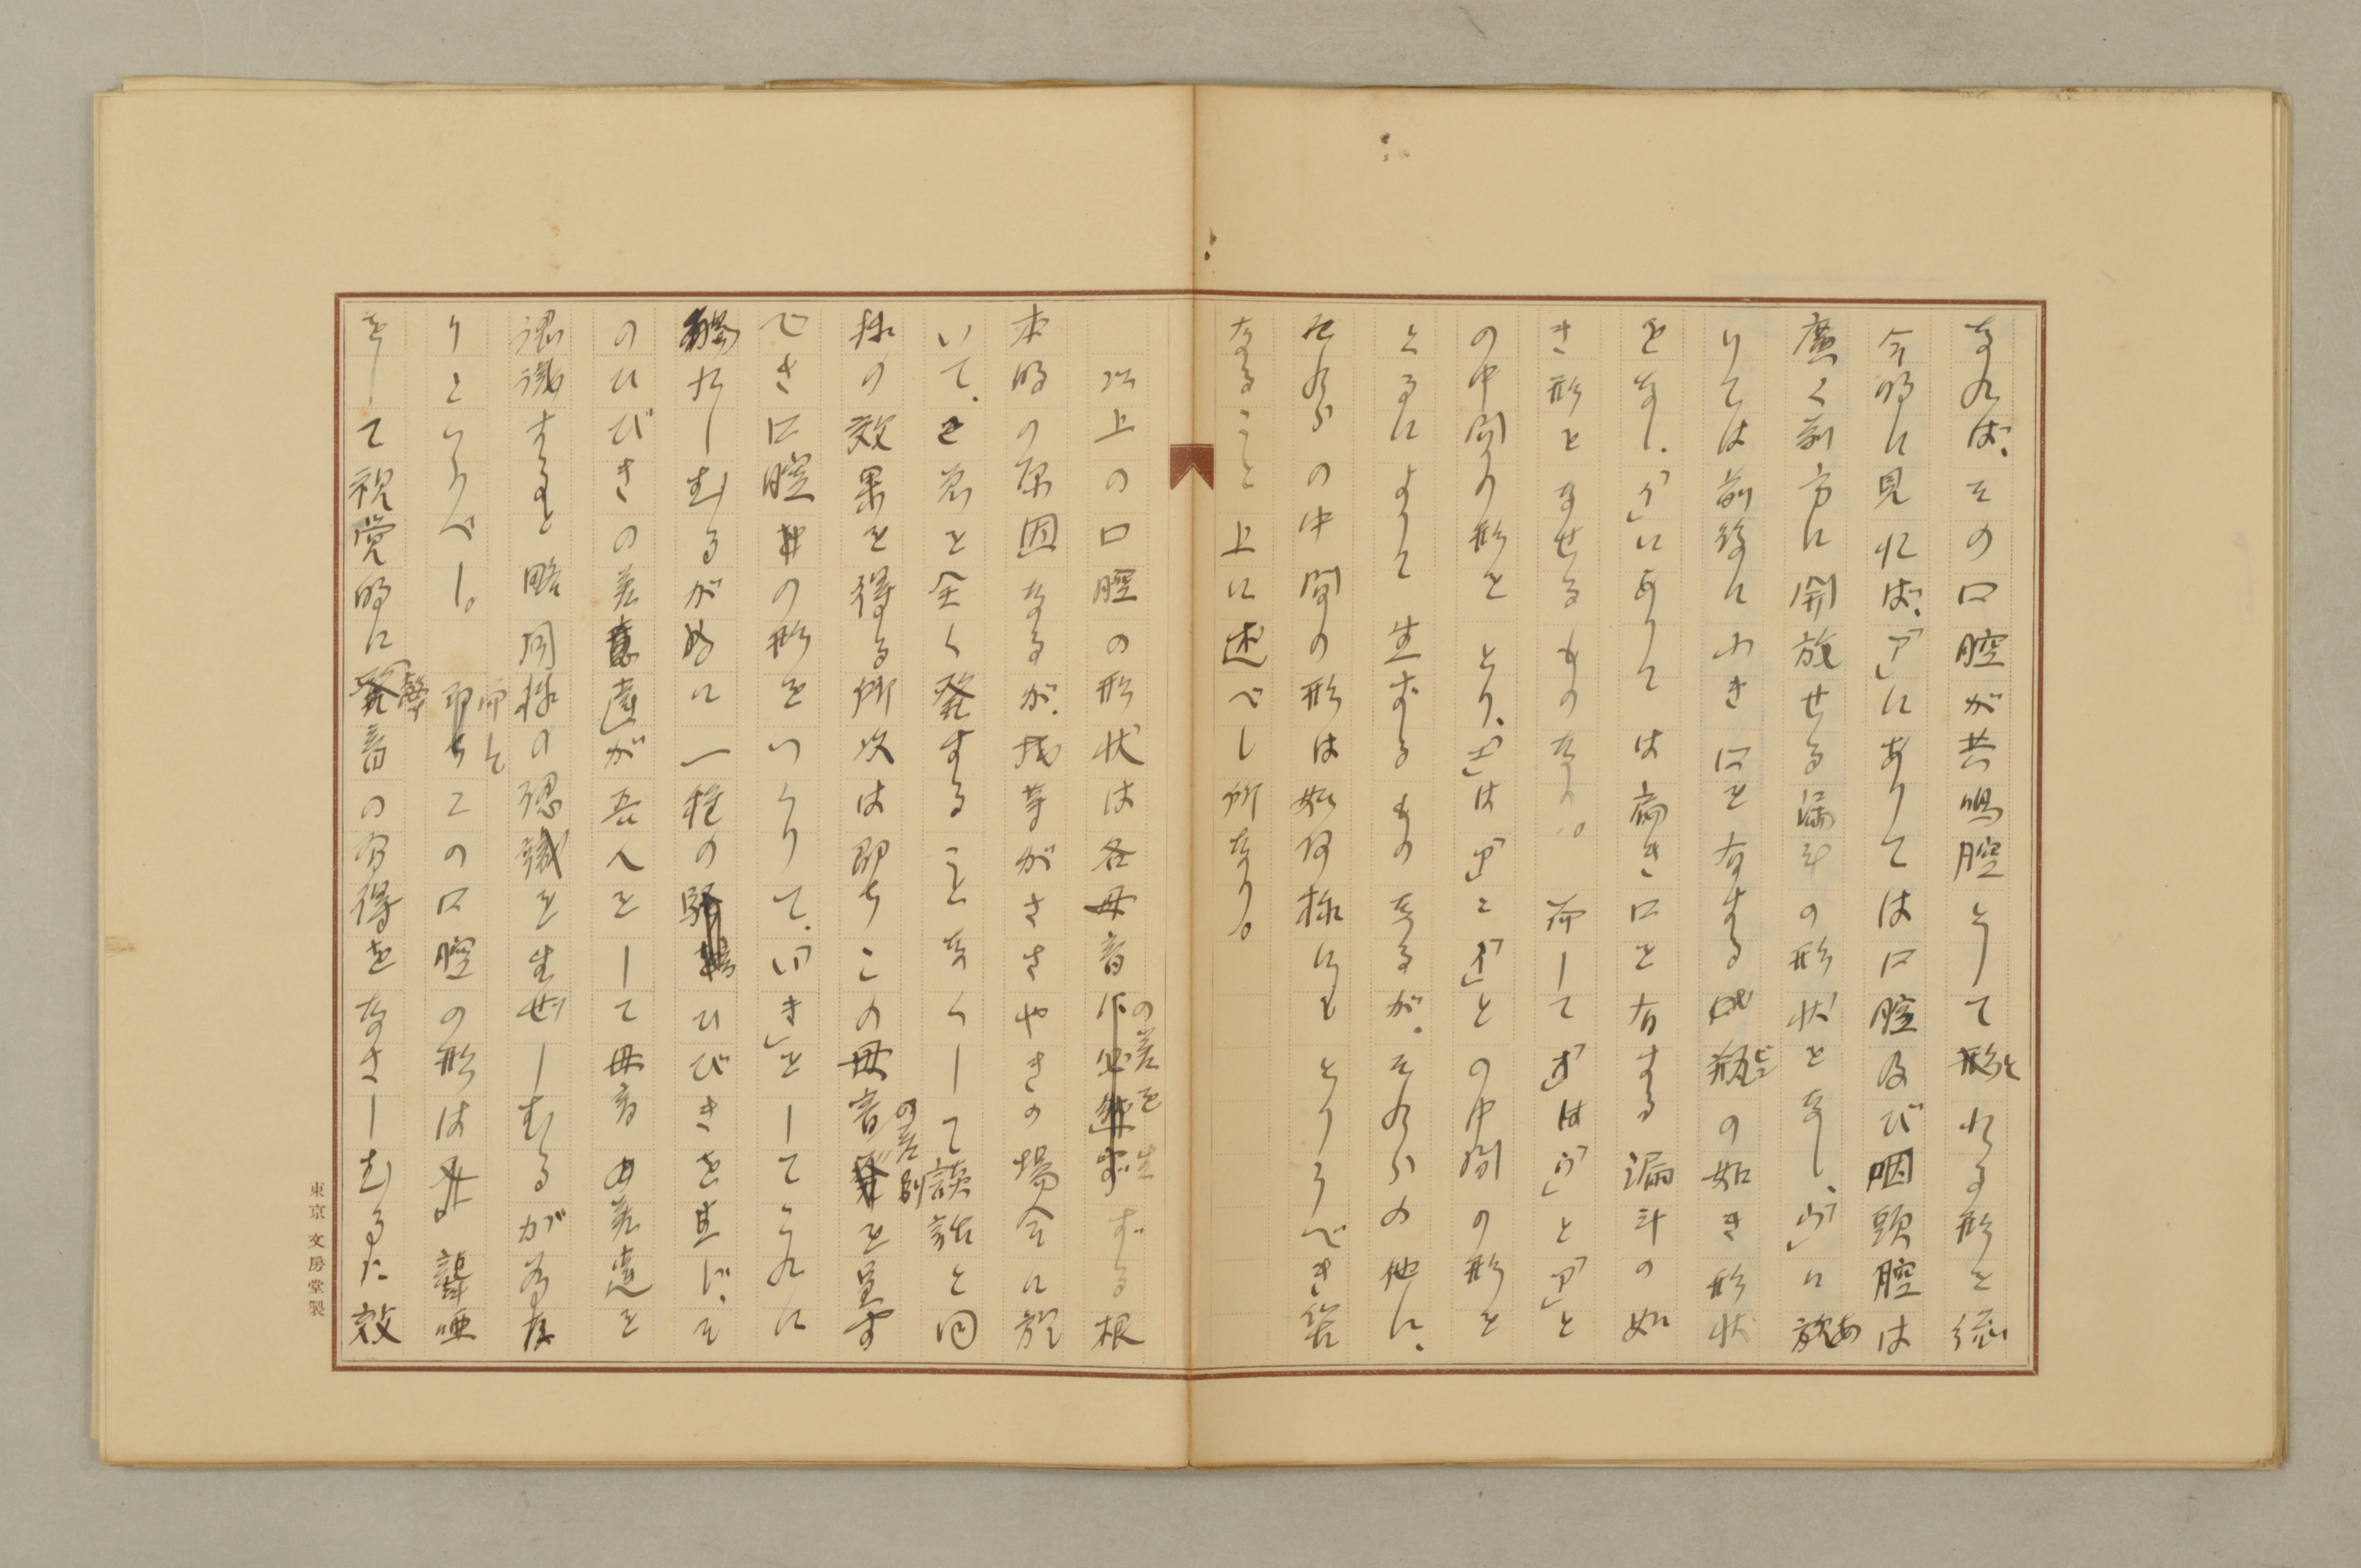 なれば、その口腔が共鳴腔として形とれる形を綜
合的に見れば、「ア」にありては口腔及び咽頭腔は
廣く前方に開放せる漏斗の形状をなし、「イ」に
りては前後に小き口を有する瓶の如き形状
をなし、「ウ」にありては扁き口を有する漏斗の如
き形をなせるものなり。而して「オ」は「ウ」と「ア」と
の中間の形をとり、「エ」は「ア」と「イ」との中間の形を
とるによりて生ずるものなるが、それらの他に、
それらの中間の形は如何様にもとりうべき筈
なること上に述べし所なり。
以上の口腔の形状は各母音の差を生ずる根
本的の原因なるが、我等がささやきの場合に於
いて、声を全く発することなくして談話と同
様の效果を得る所以は即ちこの母音の差別を呈す
べき口腔の形をつくりて、「いき」をしてこれに
觸れしむるが故に一種のひびきを生じ、そ
のひびきの差違が吾人をして母音の差違を
認識すると略同様の認識を生ぜしむるが為な
りといふべし。而してこの口腔の形は聾唖
をして視覚的に發音の習得をなさしむるに效
東京 文房堂製